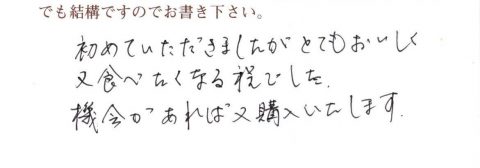 でも結構ですのでお書き下さい。
初めていただきましたがとてもおいしく
又食べたくなる程でした
機会があれば又購入いたします.